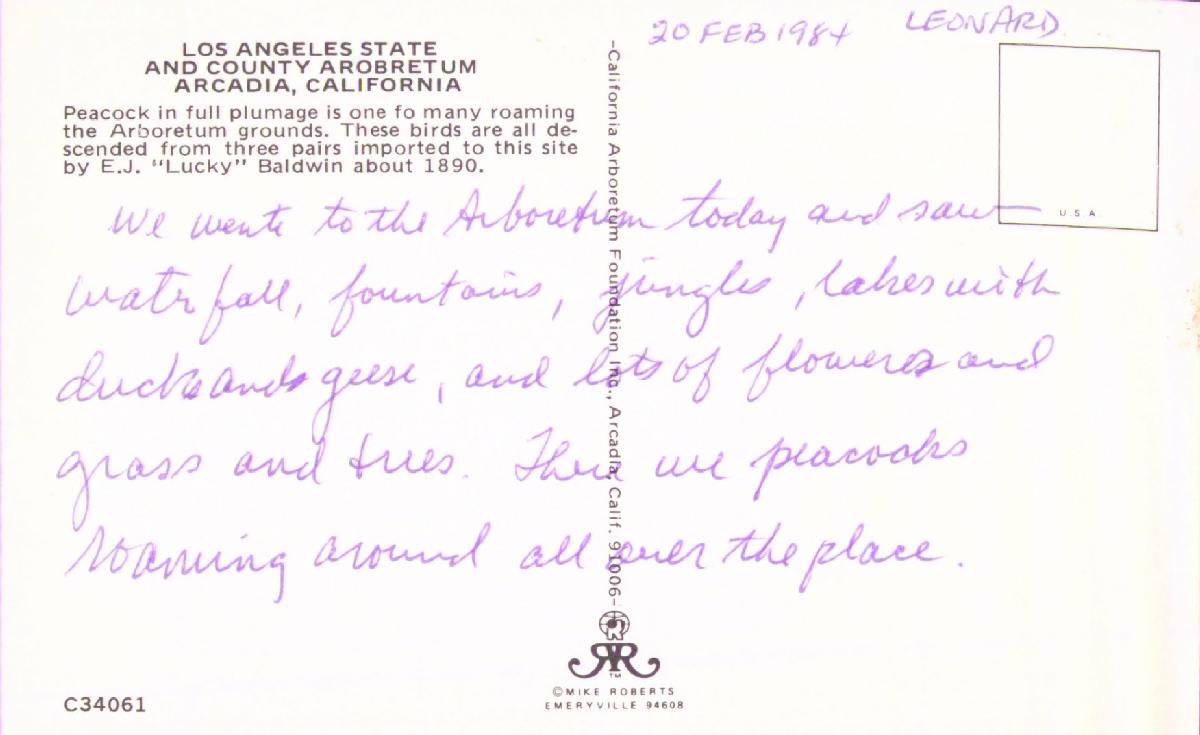 20 FEB 1984 LEONARD
LOS ANGELES STATE
AND COUNTY AROBRETUM
ARCADIA, CALIFORNIA
Peacock in full plumage is one fo many roaming
the Arboretum grounds. These birds are all de-
scended from three pairs imported to this site
by E.J. "Lucky" Baldwin about 1890.
-California Arboretum Foundation Inc., Arcadia, Calif. 91006-
U.S.A.
We went to the Arboretum today and saw
waterfall, fountains, jungles, lakes with
ducks and geese, and lots of flowers and
grass and trees. There were peacocks
roaming around all over the place.
R
RR
TM
C34061
©MIKE ROBERTS
EMERYVILLE 94608